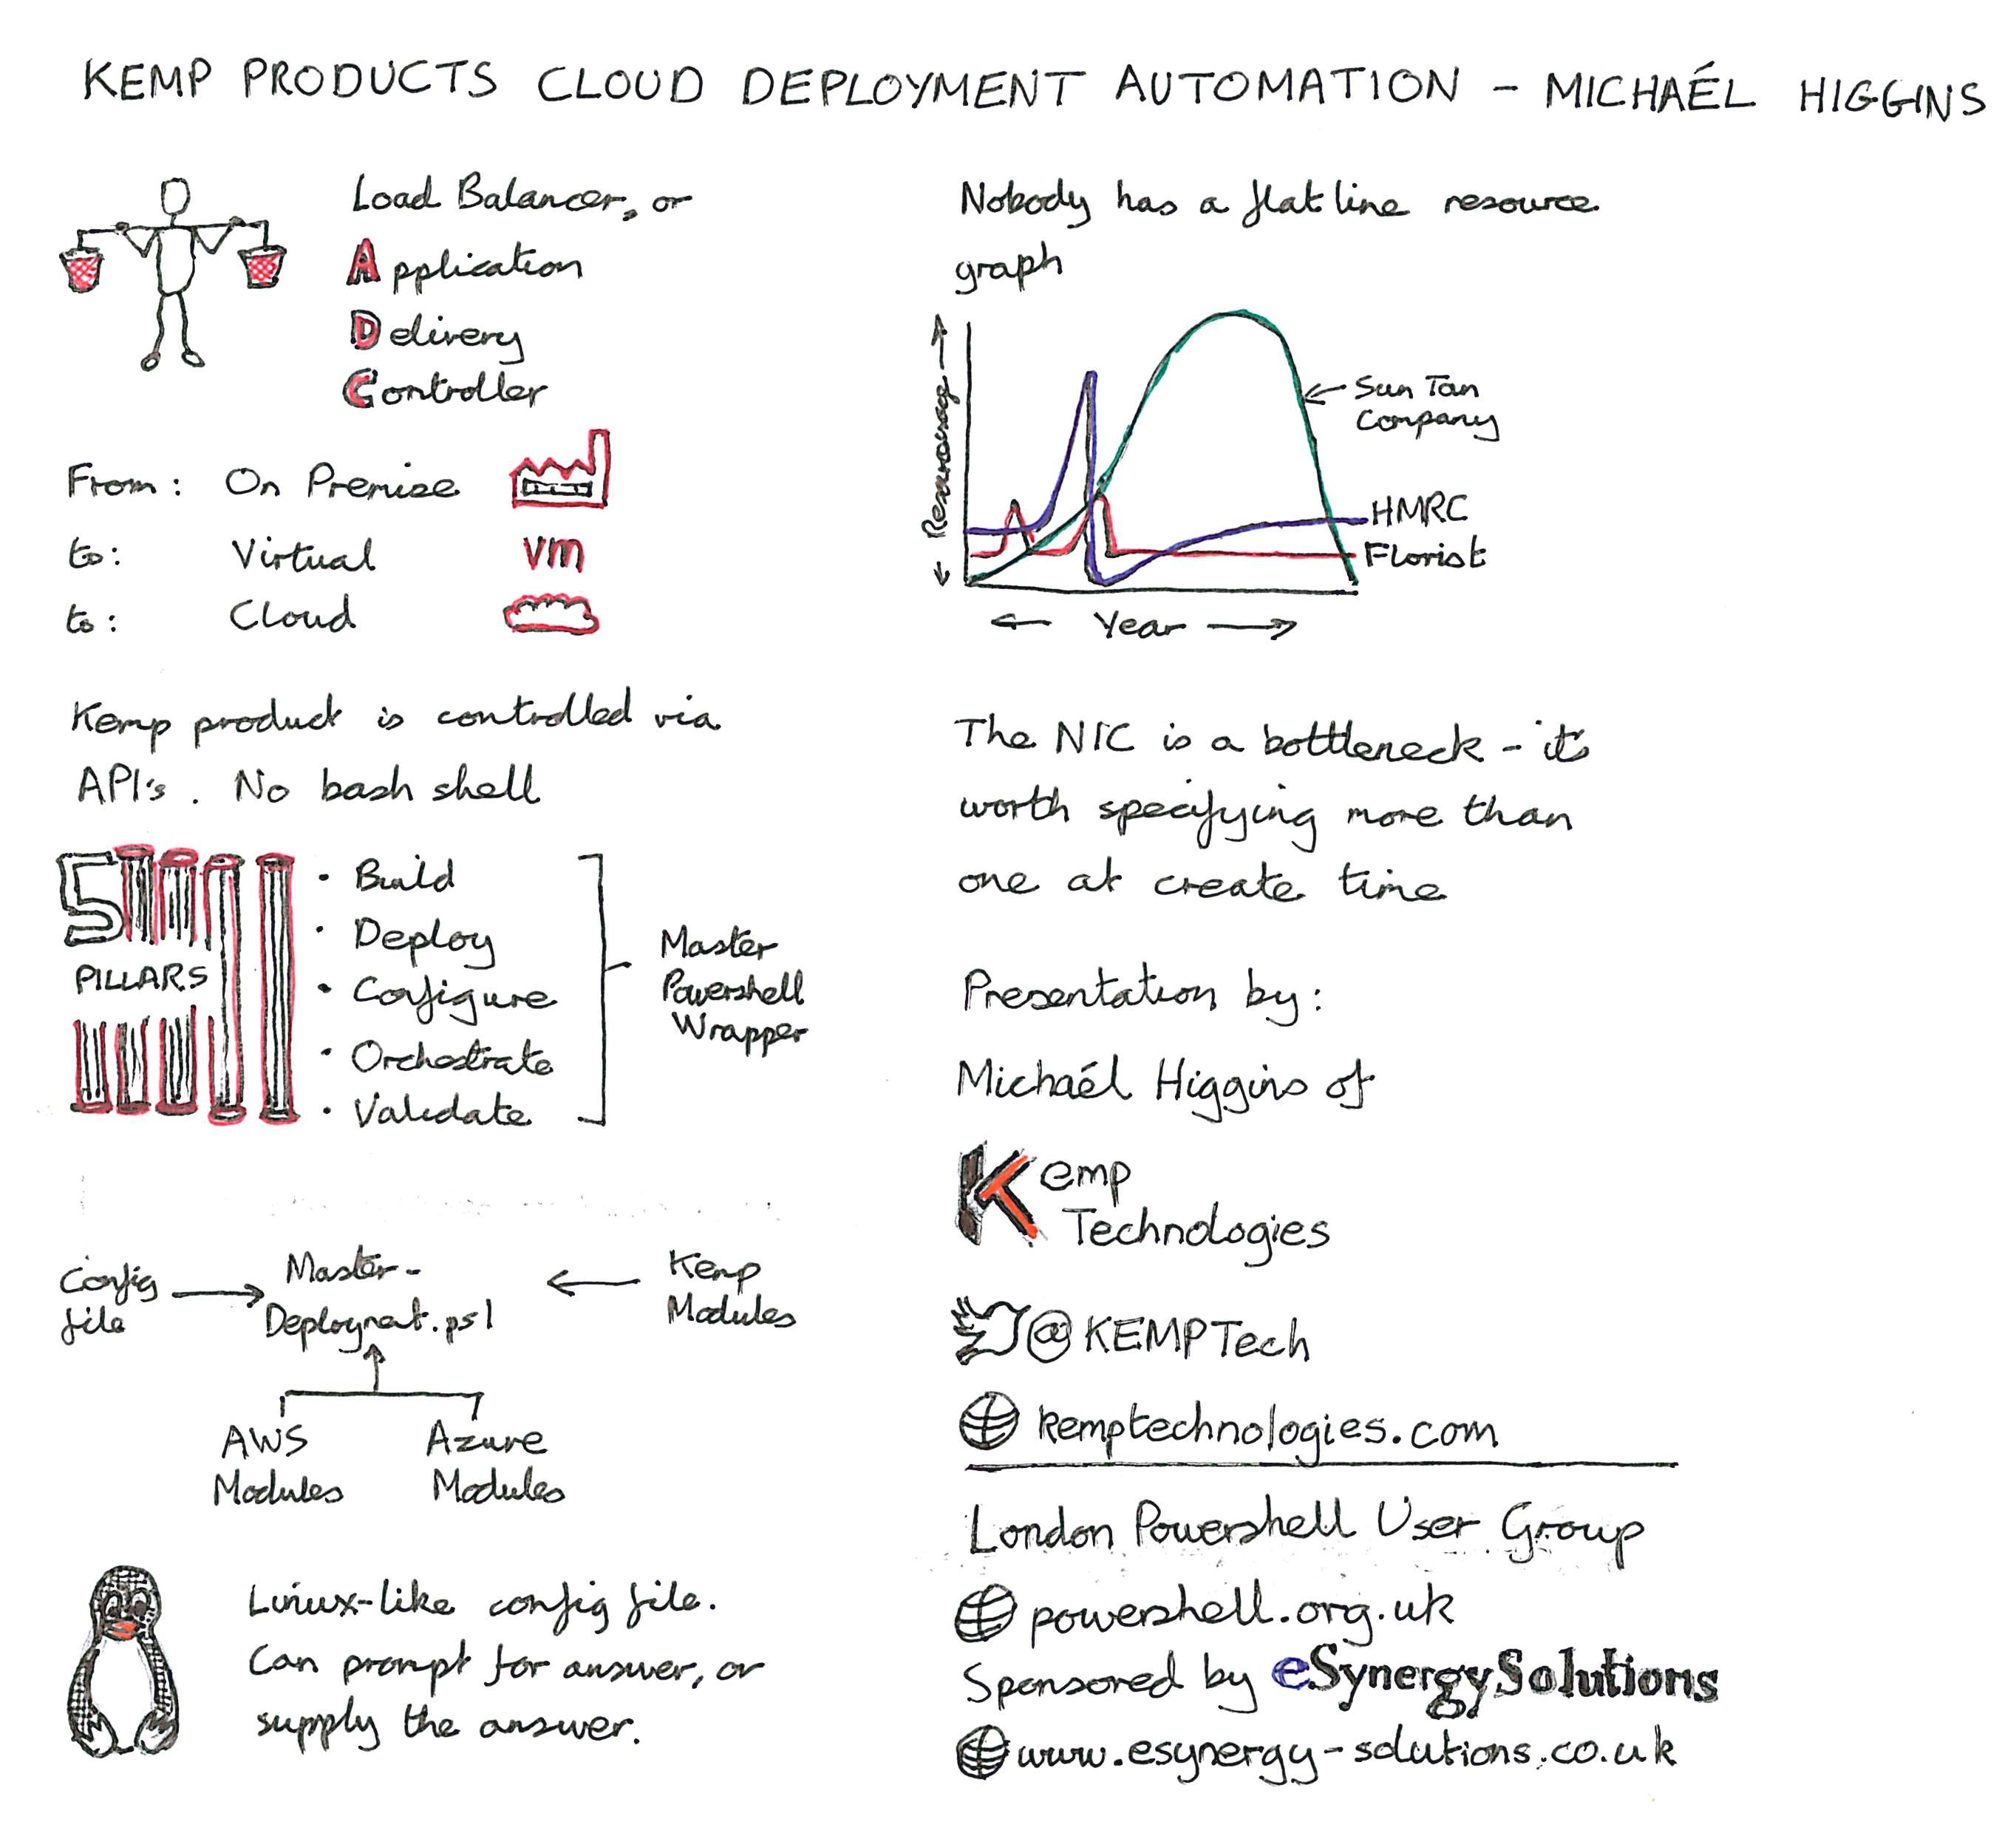 KEMP PRODUCTS CLOUD DEPLOYMENT AUTOMATION - MICHAÉL HIGGINS
Load Balancer, or
Application
Delivery
Controller
From: On Premise
to: Virtual VM
to: Cloud
Kemp product is controlled via
API's. No bash shell
5
PILLARS
• Build
• Deploy
• Configure
• Orchestrate
• Validate
Master
Powershell
Wrapper
Config
file
Master-
Deployment.ps1
Kemp
Modules
AWS
Modules
Azure
Modules
Linux-like config file.
Can prompt for answer, or
supply the answer.
Nobody has a flat line resource
graph
Sun Tan
Company
HMRC
Florist
Year
The NIC is a bottleneck - its
worth specifying more than
one at create time
Presentation by:
Michaél Higgins of
Kemp
Technologies
@KEMPTech
kemptechnologies.com
London Powershell User Group
powershell.org.uk
Sponsored by eSynergySolutions
www.esynergy-solutions.co.uk